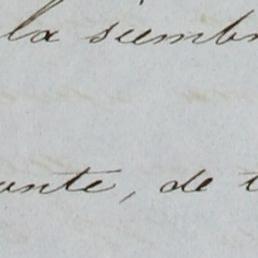 la siembr
ante, de t